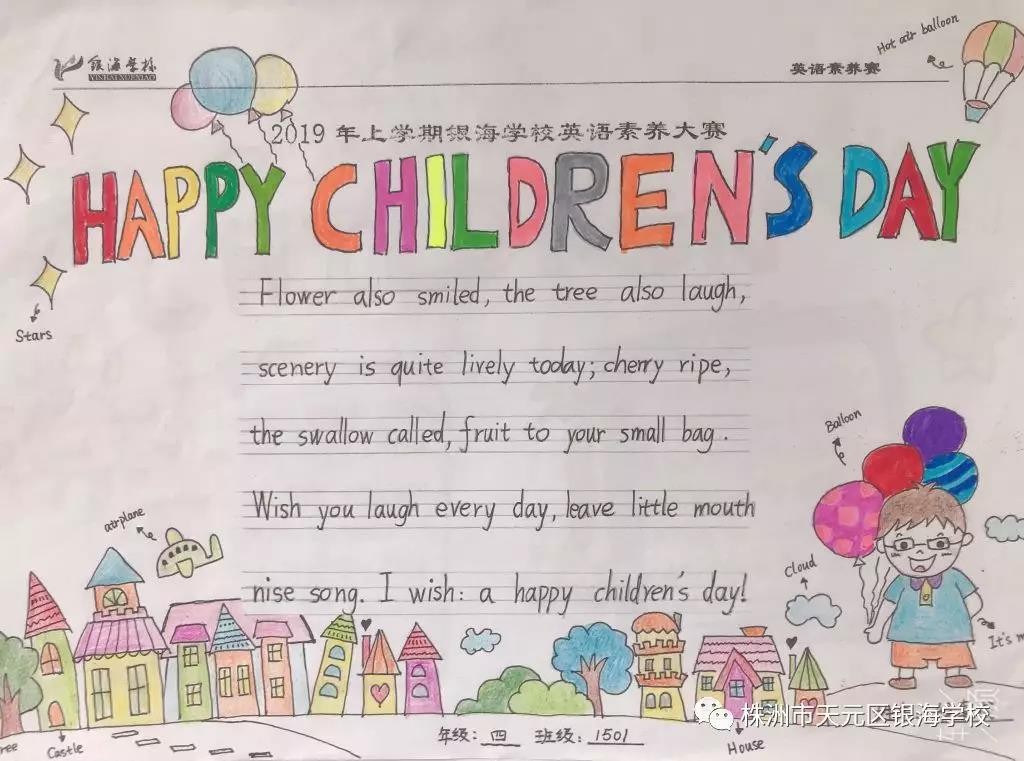 Hot air balloon
银海学校
YINHAI XUEXIAO
英语素养赛
2019 年上学期银海学校英语素养大赛
HAPPY CHILDREN'S DAY
Stars
Flower also smiled, the tree also laugh,
scenery is quite lively today; cherry ripe,
the swallow called, fruit to your small bag.
Wish you laugh every day, leave little mouth
nise song. I wish: a happy children's day!
Balloon
airplane
Cloud
It's m
株洲市天元区银海学校
年级: 四 班级: 1501
ree
Castle
House